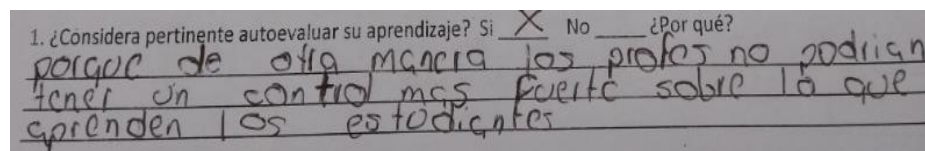 1. ¿Considera pertinente autoevaluar su aprendizaje? Si __X__ No _____ ¿Por qué?
porque de otra manera los profes no podrian
tener un control mas fuerte sobre lo que
aprenden los estudiantes